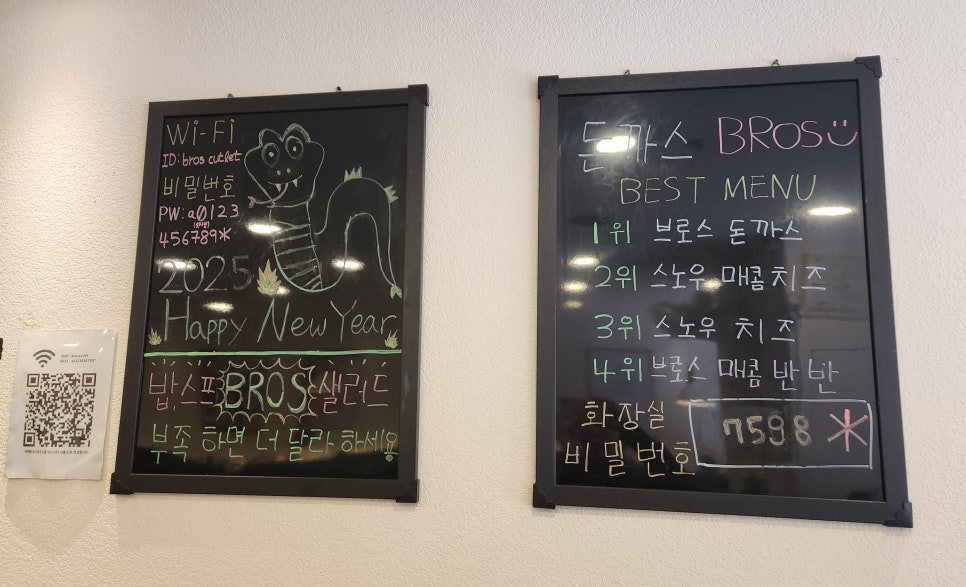 Wi-Fi
ID: bros cutlet
비밀번호
PW: a0123
456789*
2025
Happy New Year
밥,스프 BROS 샐러드
부족하면 더 달라 하세요
돈까스 BROS
BEST MENU
1위 브로스 돈까스
2위 스노우 매콤치즈
3위 스노우 치즈
4위 브로스 매콤 반반
화장실
비밀번호 7598*